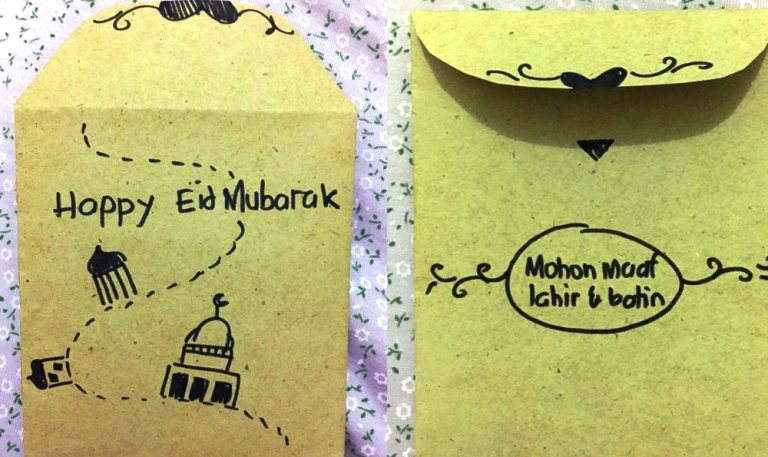 Happy Eid Mubarak
Mohon maaf
lahir & batin